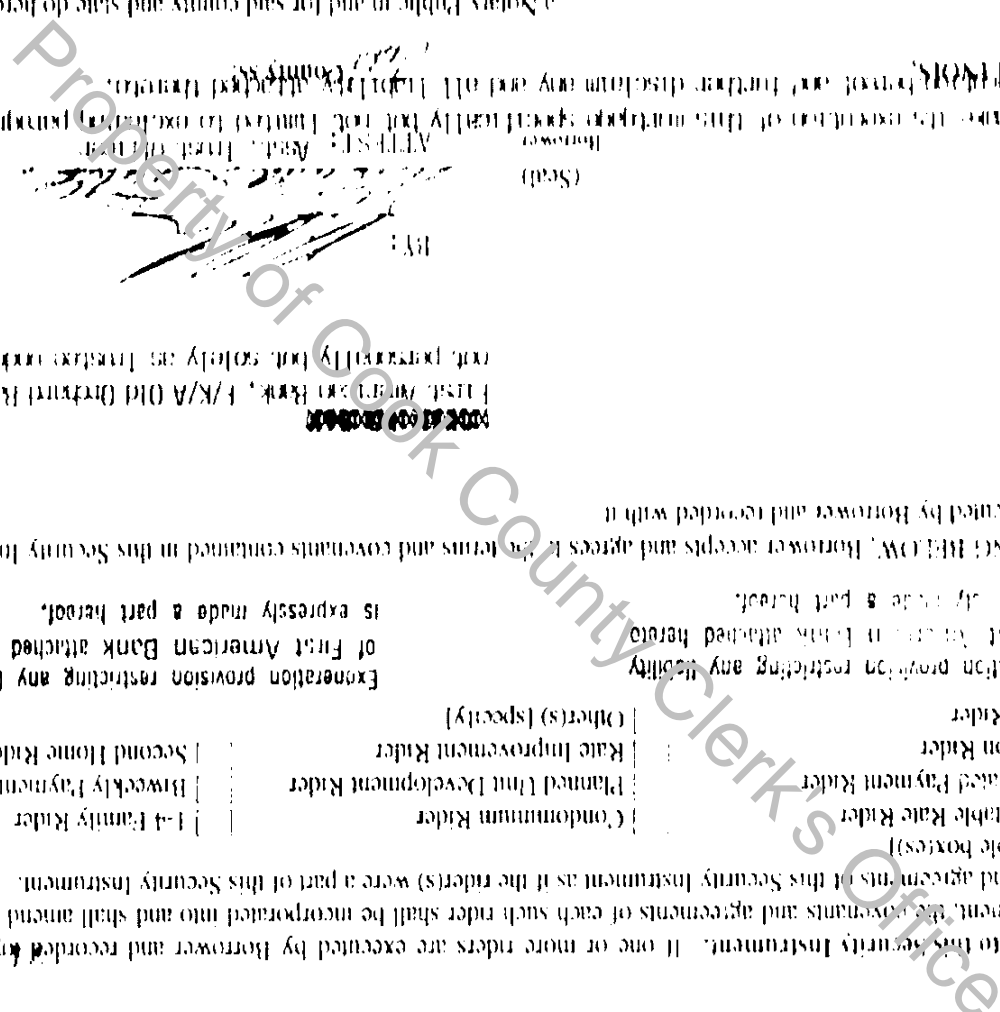 to this Security Instrument. If one or more riders are executed by Borrower and recorded
the covenants and agreements of each such rider shall be incorporated into and shall amend
nd agreements of this Security Instrument as if the rider(s) were a part of this Security Instrument.
ble box(es)]
table Rate Rider Condominium Rider 1-4 Family Rider
ated Payment Rider Planned Unit Development Rider Biweekly Payment
on Rider Rate Improvement Rider Second Home Ride
Rider Other(s) [specify]
tion provision restricting any liability
Exoneration provision restricting any
Bank attached hereto
of First American Bank attached
a part hereof.
is expressly made a part hereof.
NG BELOW, Borrower accepts and agrees to the terms and covenants contained in this Security In
cuted by Borrower and recorded with it
First American Bank, F/K/A Old Orchard B
not personally but solely as Trustee und
BY:
(Seal)
Borrower
ATTEST: Asst. Trust Officer
the execution of this mortgage specifically but not limited to
hereof and further disclaim any and all liability attached thereto.
LINOIS,
County ss:
a Notary Public in and for said county and state do here
Property of Cook County Clerk's Office